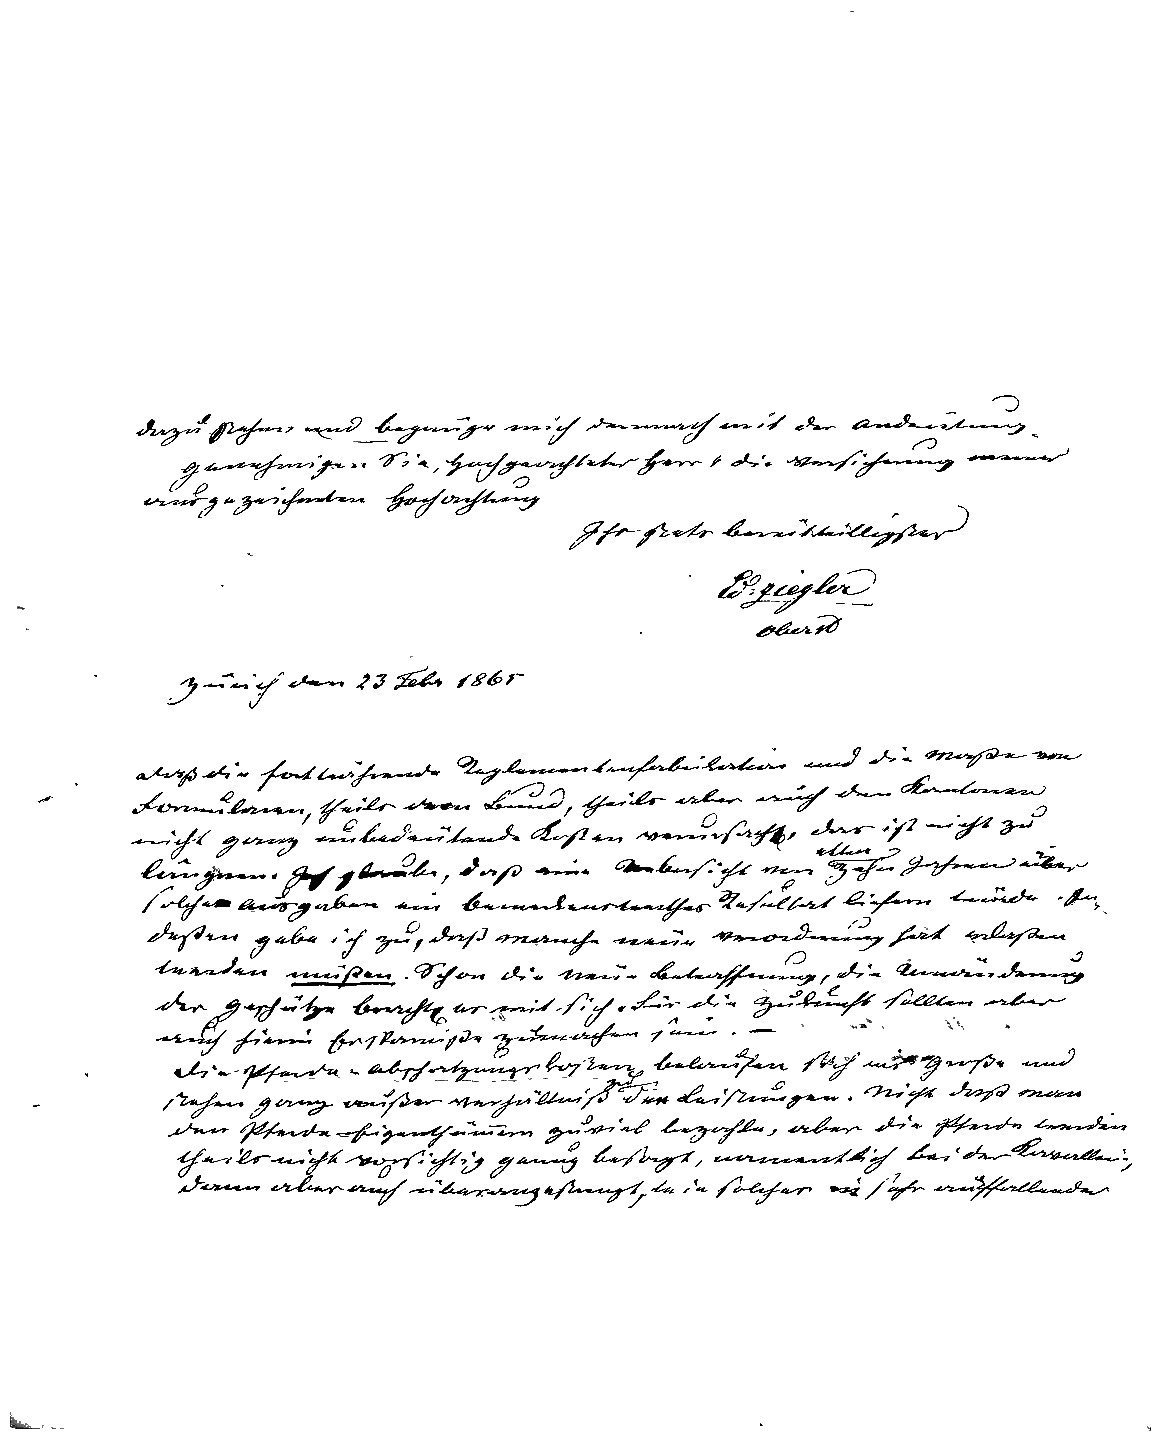 dazu stehen und begnüge mich demnach mit der Andeutung.
Genehmigen Sie, Hochgeachteter Herr! die Versicherung meiner
ausgezeichneten Hochachtung
Ihr stets bereitwilligster
Ed. Ziegler
Oberst
Zürich den 23 Febr 1865
Daß die fortwährende Reglementenfabrikation und die Maße von
Formularen, theils dem Bund, theils aber auch den Kantonen
nicht ganz unbedeutende Kosten verursacht, das ist nicht zu
läugnen. Ich glaube, daß eine Uebersicht von etwa zehn Jahren über
solche Ausgaben ein bemerkenswerthes Resultat liefern würde. In-
deßen gebe ich zu, daß manche neue Verordnung hat erlaßen
werden müßen. Schon die neue Bewaffnung, die Umänderung
der Geschütze brachte es mit sich. Für die Zukunft sollten aber
auch hierin Ersparniße zumachen sein. —
Die Pferde-Abschatzungskosten belaufen sich ins Große und
stehen ganz außer Verhältniß zu den Leistungen. Nicht daß man
den Pferde-Eigenthümern zuviel bezahle, aber die Pferde werden
theils nicht vorsichtig genug besorgt, namentlich bei der Kavallerie,
dann aber auch überangestrengt, wie solches in sehr auffallender